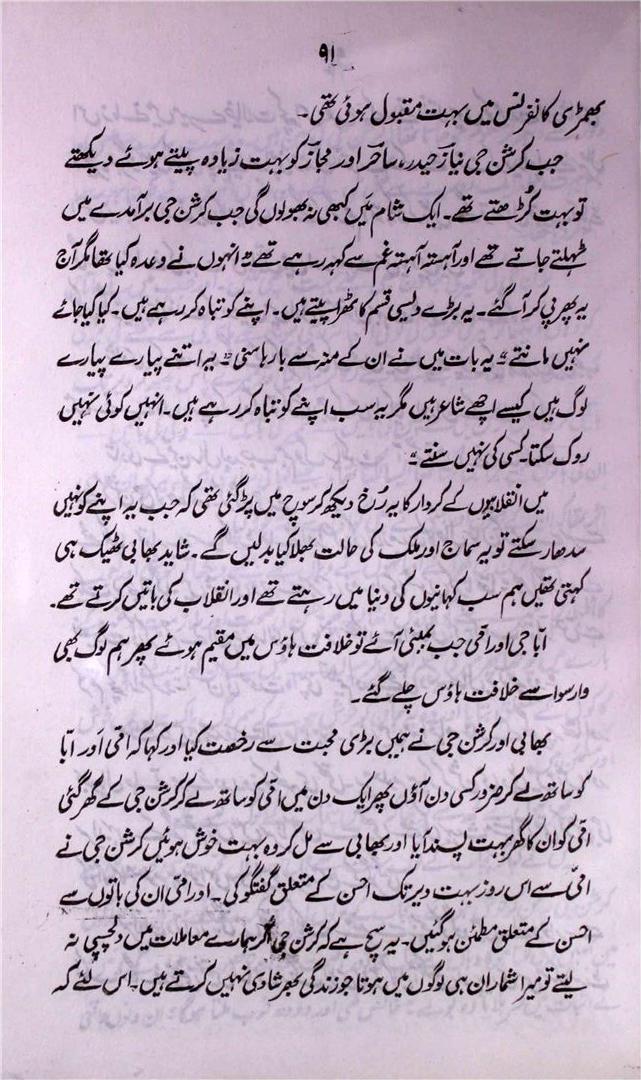 ۹۱
بھمڑی کانفرنس میں بہت مقبول ہوئی تھی۔
جب کرشن جی نیاز حیدر، ساحر اور مجاز کو بہت زیادہ پیتے ہوئے دیکھتے
تو بہت کُڑھتے تھے۔ ایک شام میں کبھی نہ بھولوں گی جب کرشن جی برآمدے میں
ٹہلتے جاتے تھے اور آہستہ آہستہ غم سے کہہ رہے تھے "انہوں نے وعدہ کیا تھا مگر آج
یہ پھر پی کر آ گئے۔ یہ بڑے دیسی قسم کا ٹھرا پیتے ہیں۔ اپنے کو تباہ کر رہے ہیں۔ کیا کیا جائے
نہیں مانتے" یہ بات میں نے ان کے منہ سے بارہا سنی "یہ اتنے پیارے پیارے
لوگ ہیں کیسے اچھے شاعر ہیں مگر یہ سب اپنے کو تباہ کر رہے ہیں۔ انہیں کوئی نہیں
روک سکتا۔ کسی کی نہیں سنتے"
میں انقلابیوں کے کردار کا یہ رُخ دیکھ کر سوچ میں پڑ گئی تھی کہ جب یہ اپنے کو نہیں
سدھار سکتے تو یہ سماج اور ملک کی حالت بھلا کیا بدلیں گے۔ شاید بھابی ٹھیک ہی
کہتی تھیں ہم سب کہانیوں کی دنیا میں رہتے تھے اور انقلاب کی باتیں کرتے تھے۔
ابّا جی اور امّی جب بمبئی آئے تو خلافت ہاؤس میں مقیم ہوئے پھر ہم لوگ بھی
وارسوا سے خلافت ہاؤس چلے گئے۔
بھابی اور کرشن جی نے ہمیں بڑی محبت سے رخصت کیا اور کہا کہ امّی اور ابّا
کو ساتھ لے کر ضرور کسی دن آؤں پھر ایک دن میں امّی کو ساتھ لے کر کرشن جی کے گھر گئی
امّی کو ان کا گھر بہت پسند آیا اور بھابی سے مل کر وہ بہت خوش ہوئیں کرشن جی نے
امّی سے اس روز بہت دیر تک احسن کے متعلق گفتگو کی۔ اور امّی ان کی باتوں سے
احسن کے متعلق مطمئن ہو گئیں۔ یہ سچ ہے کہ کرشن جی اگر ہمارے معاملات میں دلچسپی نہ
لیتے تو میرا شمار ان ہی لوگوں میں ہوتا جو زندگی بھر شادی نہیں کرتے ہیں۔ اس لئے کہ